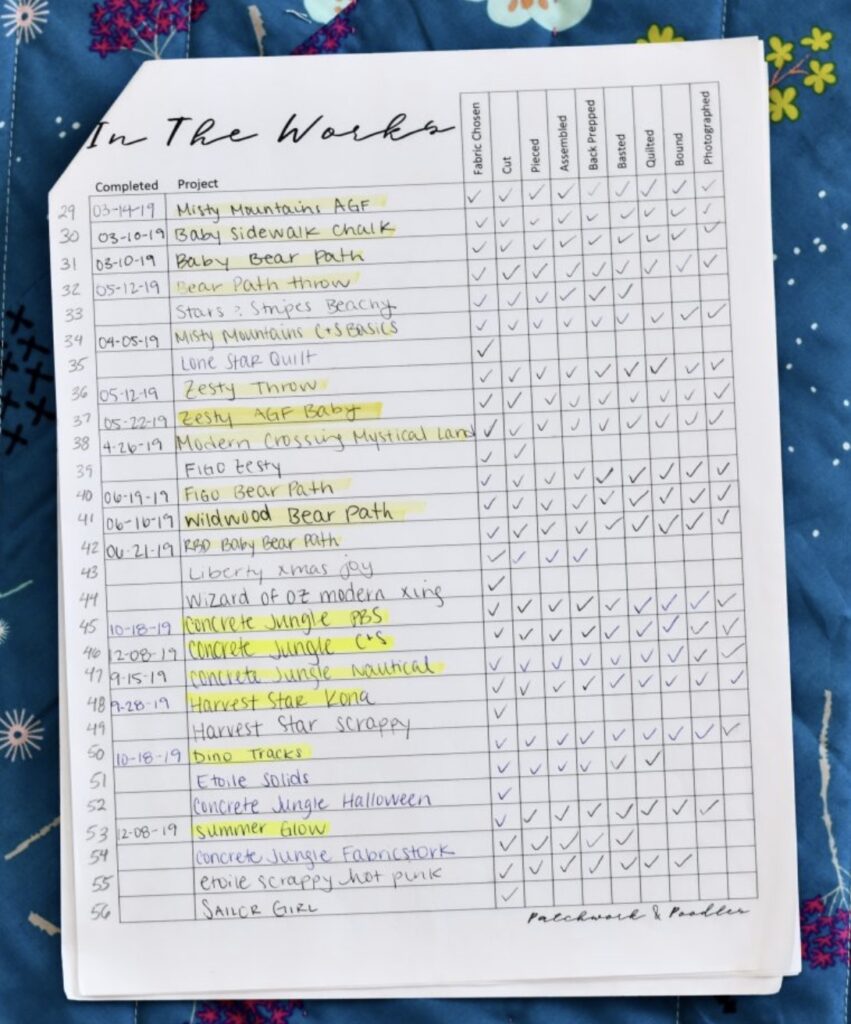 In The Works
Fabric Chosen Cut Pieced Assembled Back Prepped Basted Quilted Bound Photographed
Completed Project
29 03-14-19 Misty Mountains AGF ✓ ✓ ✓ ✓ ✓ ✓ ✓ ✓ ✓
30 03-10-19 Baby Sidewalk Chalk ✓ ✓ ✓ ✓ ✓ ✓ ✓ ✓ ✓
31 03-10-19 Baby Bear Path ✓ ✓ ✓ ✓ ✓ ✓ ✓ ✓ ✓
32 05-12-19 Bear Path throw ✓ ✓ ✓ ✓ ✓ ✓ ✓ ✓ ✓
33 Stars & Stripes Beachy ✓ ✓ ✓ ✓ ✓ ✓
34 04-05-19 Misty Mountains C+S Basics ✓ ✓ ✓ ✓ ✓ ✓ ✓ ✓ ✓
35 Lone Star Quilt ✓
36 05-12-19 Zesty Throw ✓ ✓ ✓ ✓ ✓ ✓ ✓ ✓ ✓
37 05-22-19 Zesty AGF Baby ✓ ✓ ✓ ✓ ✓ ✓ ✓ ✓ ✓
38 4-26-19 Modern Crossing Mystical Land ✓ ✓ ✓ ✓ ✓ ✓ ✓ ✓ ✓
39 FIGO Zesty ✓ ✓
40 06-19-19 FIGO Bear Path ✓ ✓ ✓ ✓ ✓ ✓ ✓ ✓ ✓
41 06-16-19 Wildwood Bear Path ✓ ✓ ✓ ✓ ✓ ✓ ✓ ✓ ✓
42 06-21-19 RBD Baby Bear Path ✓ ✓ ✓ ✓ ✓ ✓ ✓ ✓ ✓
43 Liberty xmas joy ✓ ✓ ✓ ✓
44 Wizard of Oz modern xing ✓
45 10-18-19 Concrete Jungle PBS ✓ ✓ ✓ ✓ ✓ ✓ ✓ ✓ ✓
46 12-08-19 Concrete Jungle C+S ✓ ✓ ✓ ✓ ✓ ✓ ✓ ✓ ✓
47 9-15-19 Concrete Jungle Nautical ✓ ✓ ✓ ✓ ✓ ✓ ✓ ✓ ✓
48 9-28-19 Harvest Star Kona ✓ ✓ ✓ ✓ ✓ ✓ ✓ ✓ ✓
49 Harvest Star Scrappy ✓
50 10-18-19 Dino Tracks ✓ ✓ ✓ ✓ ✓ ✓ ✓ ✓ ✓
51 Etoile Solids ✓ ✓ ✓ ✓ ✓ ✓
52 Concrete Jungle Halloween ✓
53 12-08-19 Summer Glow ✓ ✓ ✓ ✓ ✓ ✓ ✓ ✓
54 Concrete Jungle Fabricstork ✓ ✓ ✓ ✓ ✓
55 etoile scrappy hot pink ✓ ✓ ✓ ✓ ✓ ✓ ✓
56 Sailor Girl ✓
Patchwork & Poodles